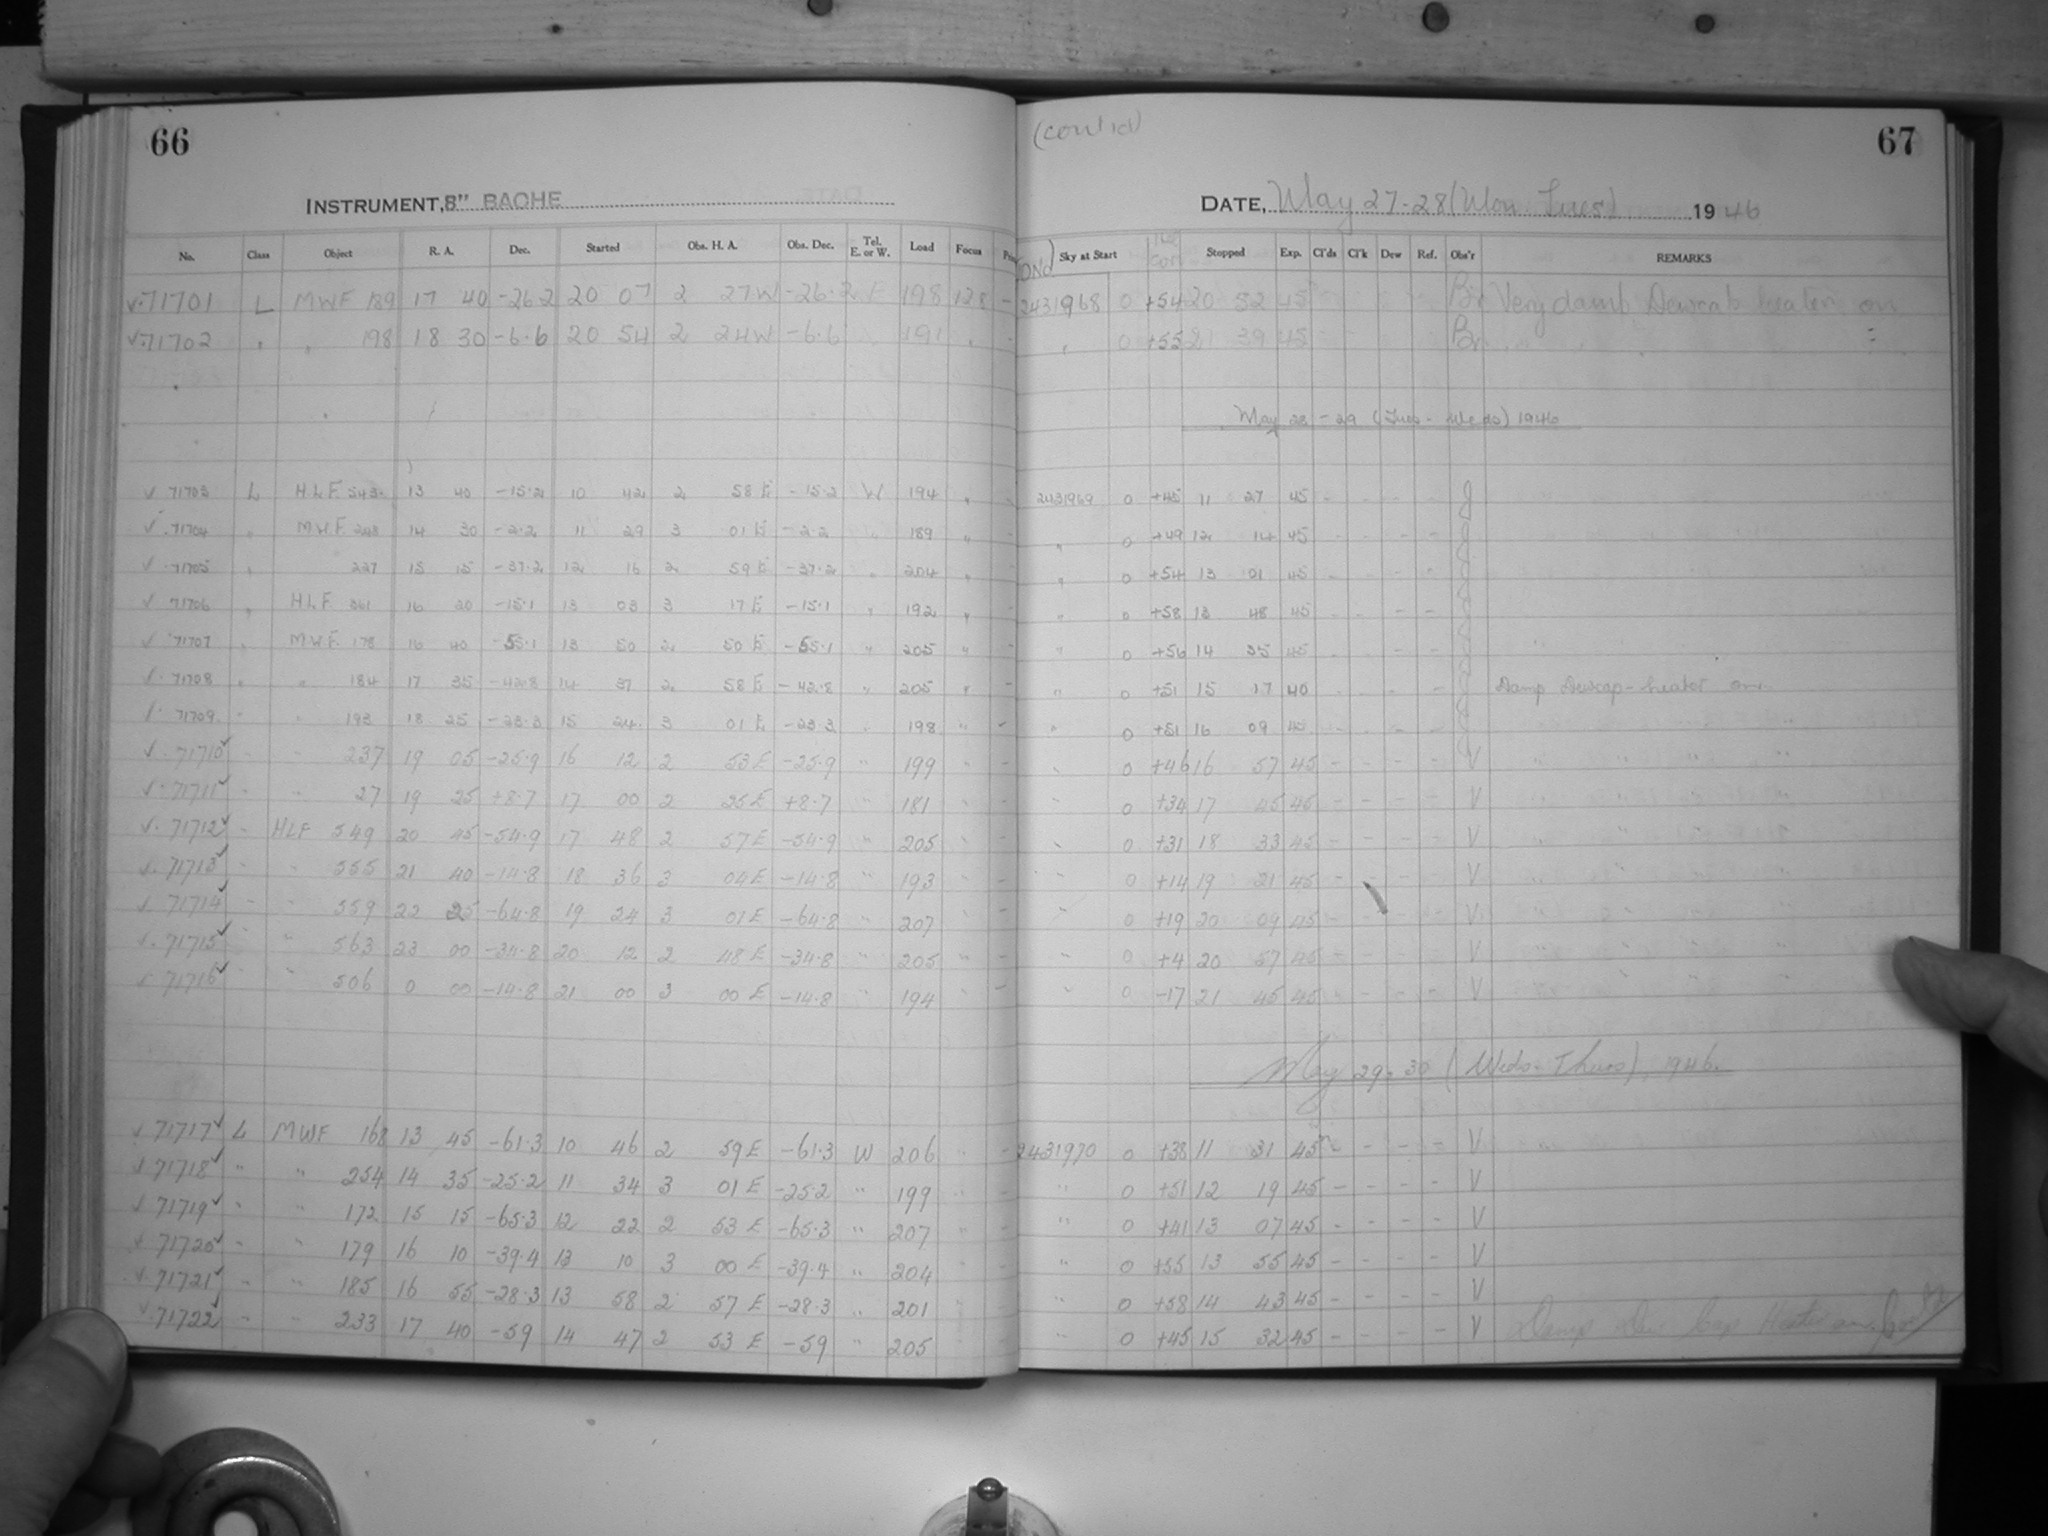 66
INSTRUMENT, 8" BACHE
No. Class Object R. A. Dec. Started Obs. H. A. Obs. Dec. Tel. E. or W. Load Focus
√ 71701 L MWF 189 17 40 -26.2 20 07 2 27W -26.2 E 198 128 -
√ 71702 " " 198 18 30 -6.6 20 54 2 24W -6.6 191 " -
√ 71703 L HLF 543 13 40 -15.2 10 42 2 58 E -15.2 W 194 "
√ 71704 " MWF 248 14 30 -2.2 11 29 3 01 E -2.2 " 189 " -
√ 71705 " 227 15 15 -37.2 12 16 2 59 E -37.2 " 204 " -
√ 71706 " HLF 561 16 20 -15.1 13 03 3 17 E -15.1 " 192 " -
√ 71707 " MWF 178 16 40 -55.1 13 50 2 50 E -55.1 " 205 " -
√ 71708 " " 184 17 35 -42.8 14 37 2 58 E -42.8 " 205 " -
√ 71709 " " 193 18 25 -23.3 15 24 3 01 E -23.3 " 198 " -
√ 71710√ " " 237 19 05 -25.9 16 12 2 53 E -25.9 " 199 " -
√ 71711√ " " 27 19 25 +8.7 17 00 2 25 E +8.7 " 181 " -
√ 71712√ " HLF 549 20 45 -54.9 17 48 2 57 E -54.9 " 205 " -
√ 71713√ " 555 21 40 -14.8 18 36 3 04 E -14.8 " 193 " -
√ 71714√ " " 559 22 25 -64.8 19 24 3 01 E -64.8 " 207 " -
√ 71715√ " " 563 23 00 -34.8 20 12 2 48 E -34.8 " 205 " -
√ 71716√ " " 506 0 00 -14.8 21 00 3 00 E -14.8 " 194 " -
√ 71717√ L MWF 168 13 45 -61.3 10 46 2 59 E -61.3 W 206 " -
√ 71718√ " " 254 14 35 -25.2 11 34 3 01 E -25.2 " 199 " -
√ 71719√ " " 172 15 15 -65.3 12 22 2 53 E -65.3 " 207 " -
√ 71720√ " " 179 16 10 -39.4 13 10 3 00 E -39.4 " 204 " -
√ 71721√ " " 185 16 55 -28.3 13 58 2 57 E -28.3 " 201 " -
√ 71722√ " " 233 17 40 -59 14 47 2 53 E -59 " 205 " -
(cont'd)
67
DATE, May 27-28 (Mon Tues) 1946
Sky at Start Stopped Exp. Cl'ds Cl'k Dew Ref. Obs'r REMARKS
2431968 0 +54 20 52 45 Br Very damp Dewcap heater on
" 0 +55 21 39 45 Br " " "
May 28-29 (Tues - Weds) 1946
2431969 0 +45 11 27 45 - - - - J
" 0 +49 12 14 45 - - - - J
" 0 +54 13 01 45 - - - - J
" 0 +58 13 48 45 - - - - J
" 0 +56 14 35 45 - - - - J
" 0 +51 15 17 40 - - - - J Damp Dewcap-heater on
" 0 +51 16 09 45 - - - - J
" 0 +46 16 57 45 - - - - V " " " "
" 0 +34 17 45 45 - - - - V " " " "
" 0 +31 18 33 45 - - - - V " " " "
" 0 +14 19 21 45 - - - - V " " " "
" 0 +19 20 09 45 - - - - V " " " "
" 0 +4 20 57 45 - - - - V " " " "
" 0 -17 21 45 45 - - - - V " " " "
May 29-30 (Weds - Thurs), 1946
2431970 0 +38 11 31 45 - - - - V
" 0 +51 12 19 45 - - - - V
" 0 +41 13 07 45 - - - - V
" 0 +55 13 55 45 - - - - V
" 0 +58 14 43 45 - - - - V
" 0 +45 15 32 45 - - - - V Damp Dew Cap Heater on